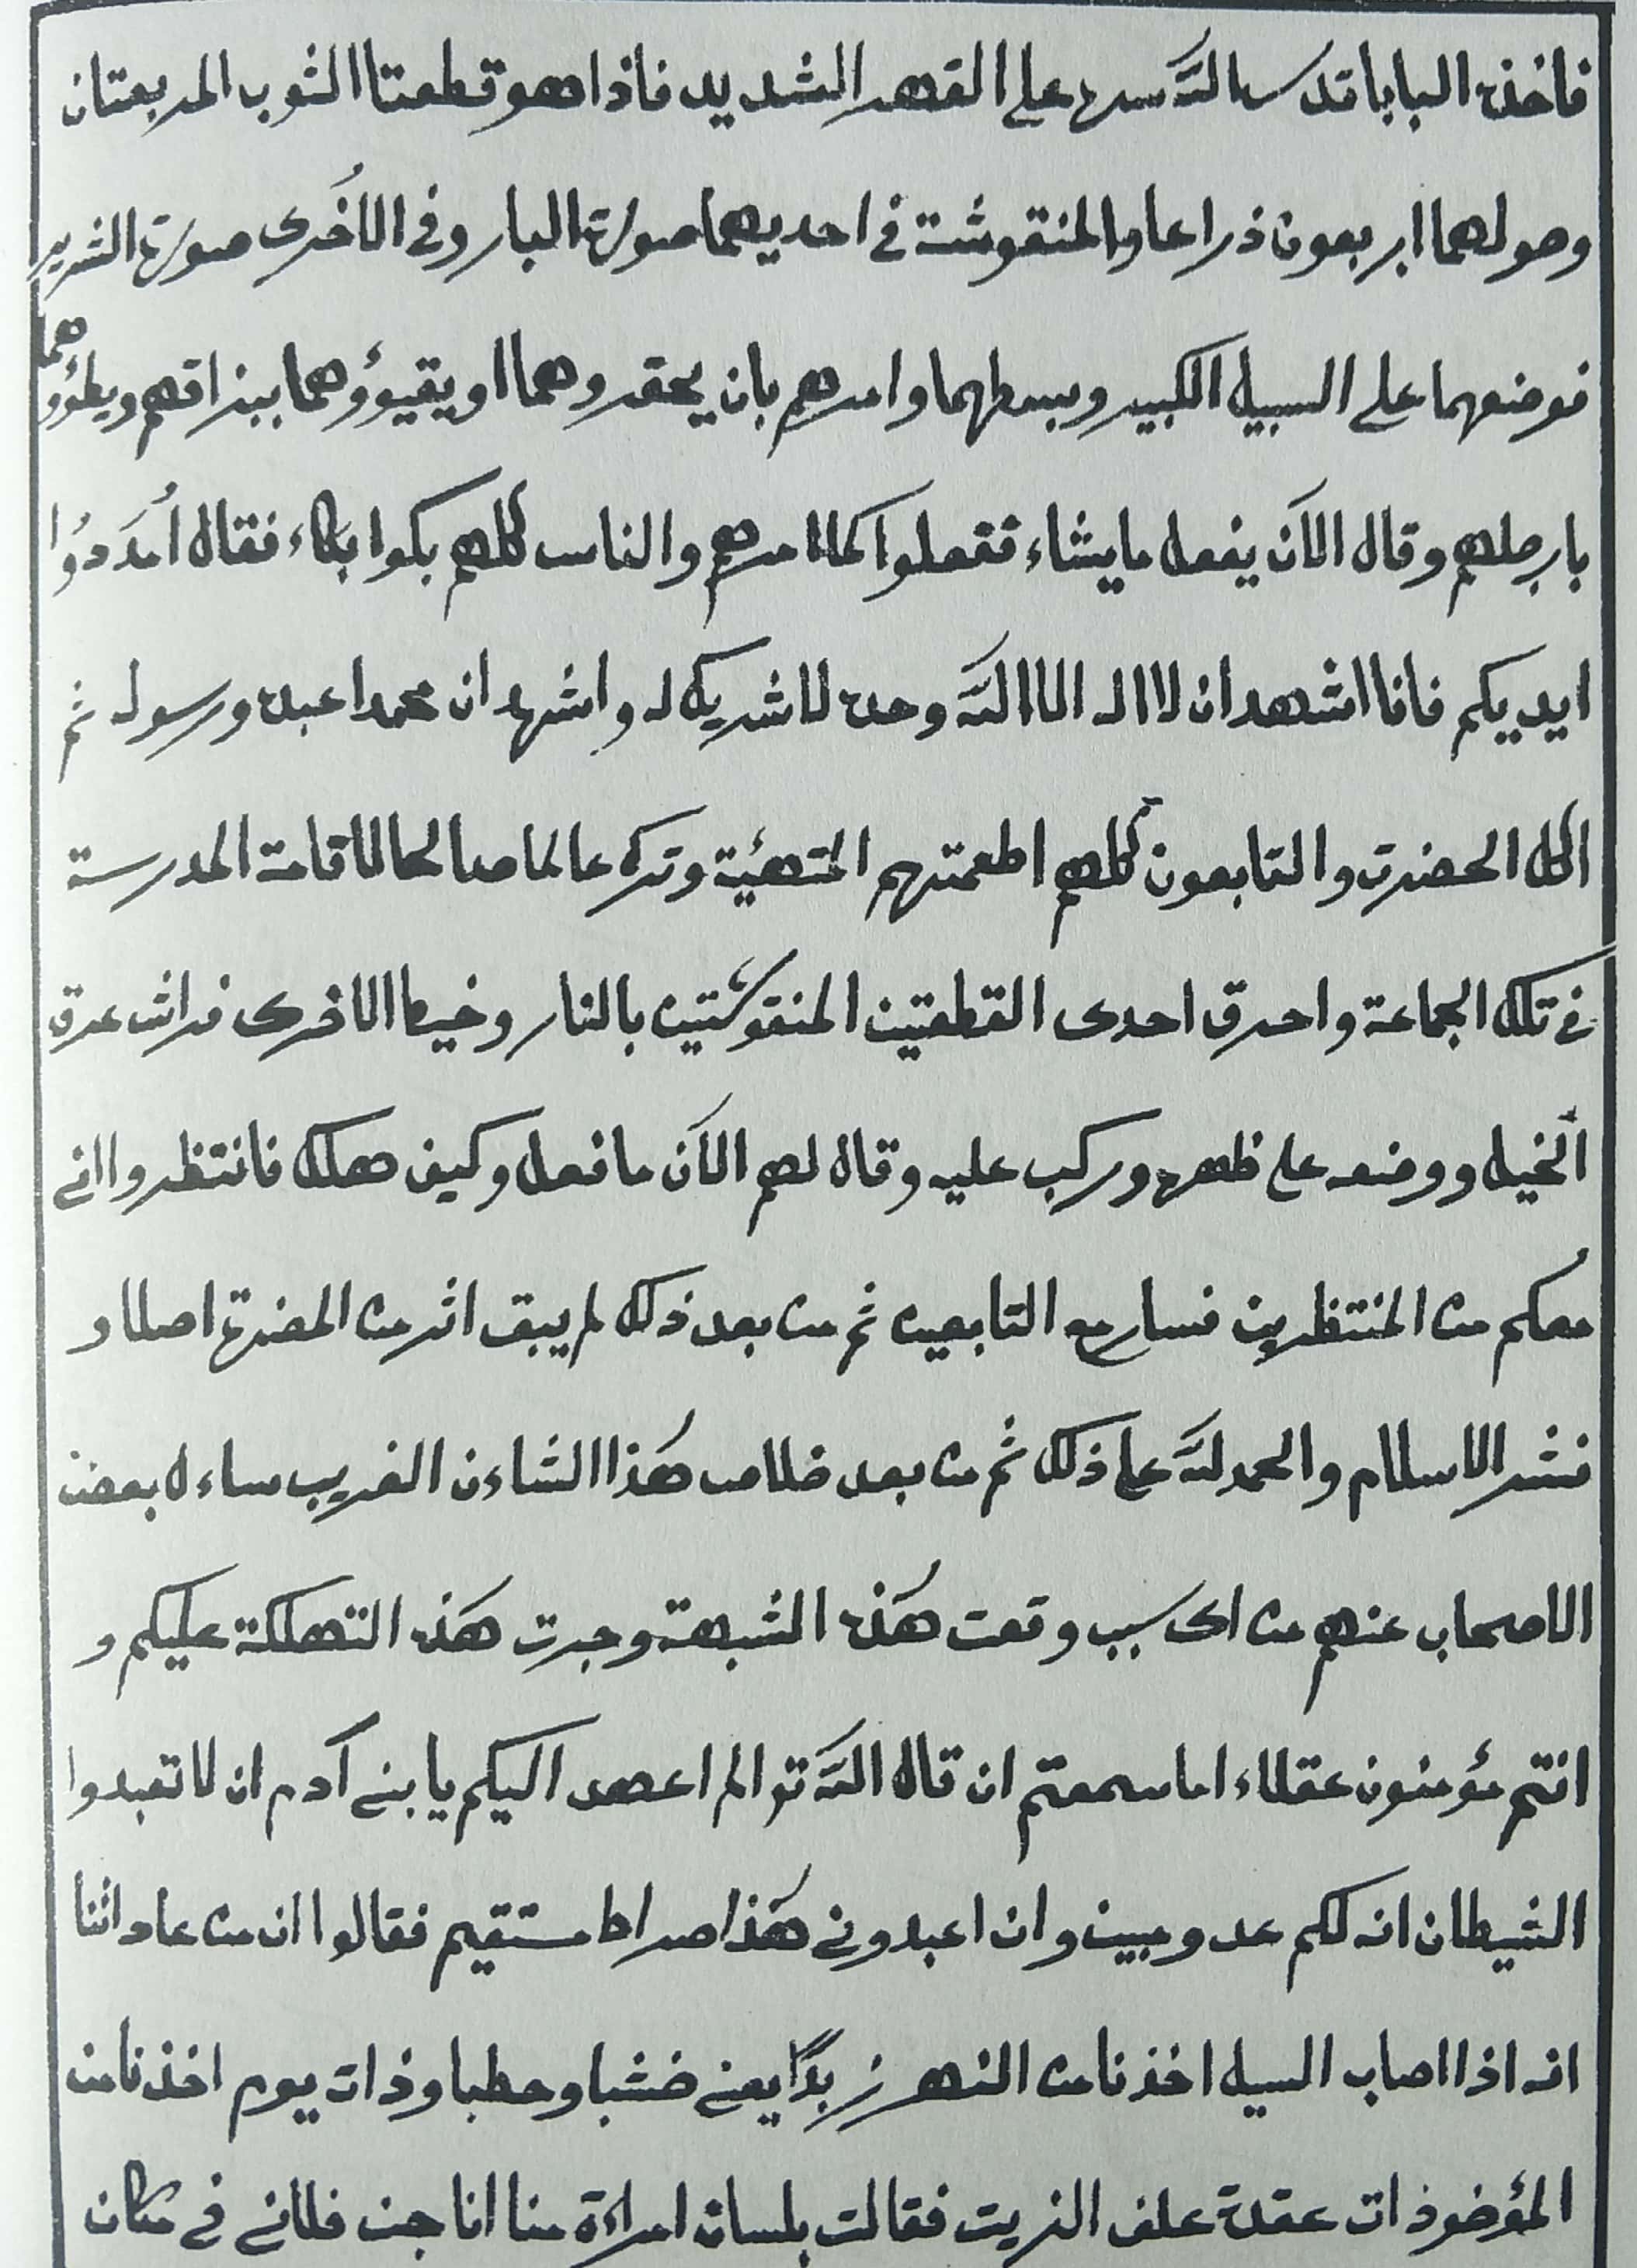 فاخذه البابا قدس الله سره على القهر الشديد فاذا هو قطعتا الثوب المربعتان
وصولهما اربعون ذراعا والمنقوشة في احديهما صورة البار وفي الأخرى صورة الشرير
فوضعهما على السبيل الكبير وبسطهما وامرهم بان يحقروهما او يقيؤوهما ببزاقهم ويطؤوهما
بارجلهم وقال الآن يفعل ما يشاء ففعلوا كما امرهم والناس كلهم بكوا بكاء فقال أمَددُوا
ايديكم فانا اشهد ان لا اله الا الله وحده لا شريك له واشهد ان محمدا عبده ورسوله ثم
اكل الحضرت والتابعون كلهم اطعمتهم المتهئية وترك عالما صالحا لاقامة المدرسة
في تلك الجماعة واحرق احدى القطعتين المنقوشتين بالنار وخيط الاخرى فراش عرق
الخيل ووضعه على ظهره وركب عليه وقال لهم الآن ما فعل وكيف هلك فانتظروا اني
معكم من المنتظرين فسار مع التابعين ثم من بعد ذلك لم يبق اثر من المضرة اصلا و
فشر الاسلام والحمد لله على ذلك ثم من بعد خلاص هٰذا الشاءن الغريب ساءل بعض
الاصحاب عنهم من اى سبب وقعت هٰذه الشبهة وجرت هٰذه التهلكة عليكم و
انتم مؤمنون عقلاء اما سمعتم ان قال الله تعو الم اعهد اليكم يا بني آدم ان لا تعبدوا
الشيطان انه لكم عدو مبين وان اعبدوني هٰذا صراط مستقيم فقالوا ان من عاداتنا
انه اذا اصاب السيل اخذنا من النهر زبدًا يعني خشبا وحطبا وذات يوم اخذنا من
المؤخوذات عقدة علف الزيت فقالت بلسان امراءة منا انا جن فلاني في مكان